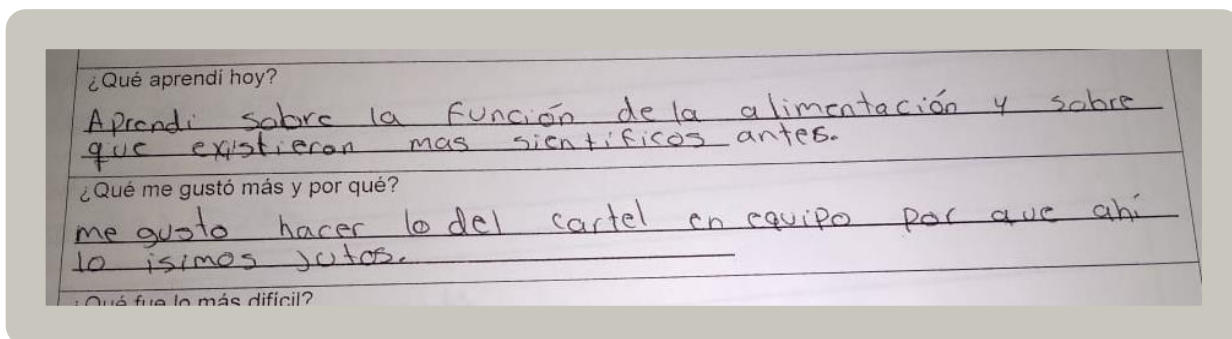 ¿Qué aprendí hoy?
Aprendi sobre la función de la alimentación y sobre
que existieron mas sientificos antes.
¿Qué me gustó más y por qué?
me gusto hacer lo del cartel en equipo por que ahí
lo isimos jutos.
¿Qué fue lo más difícil?